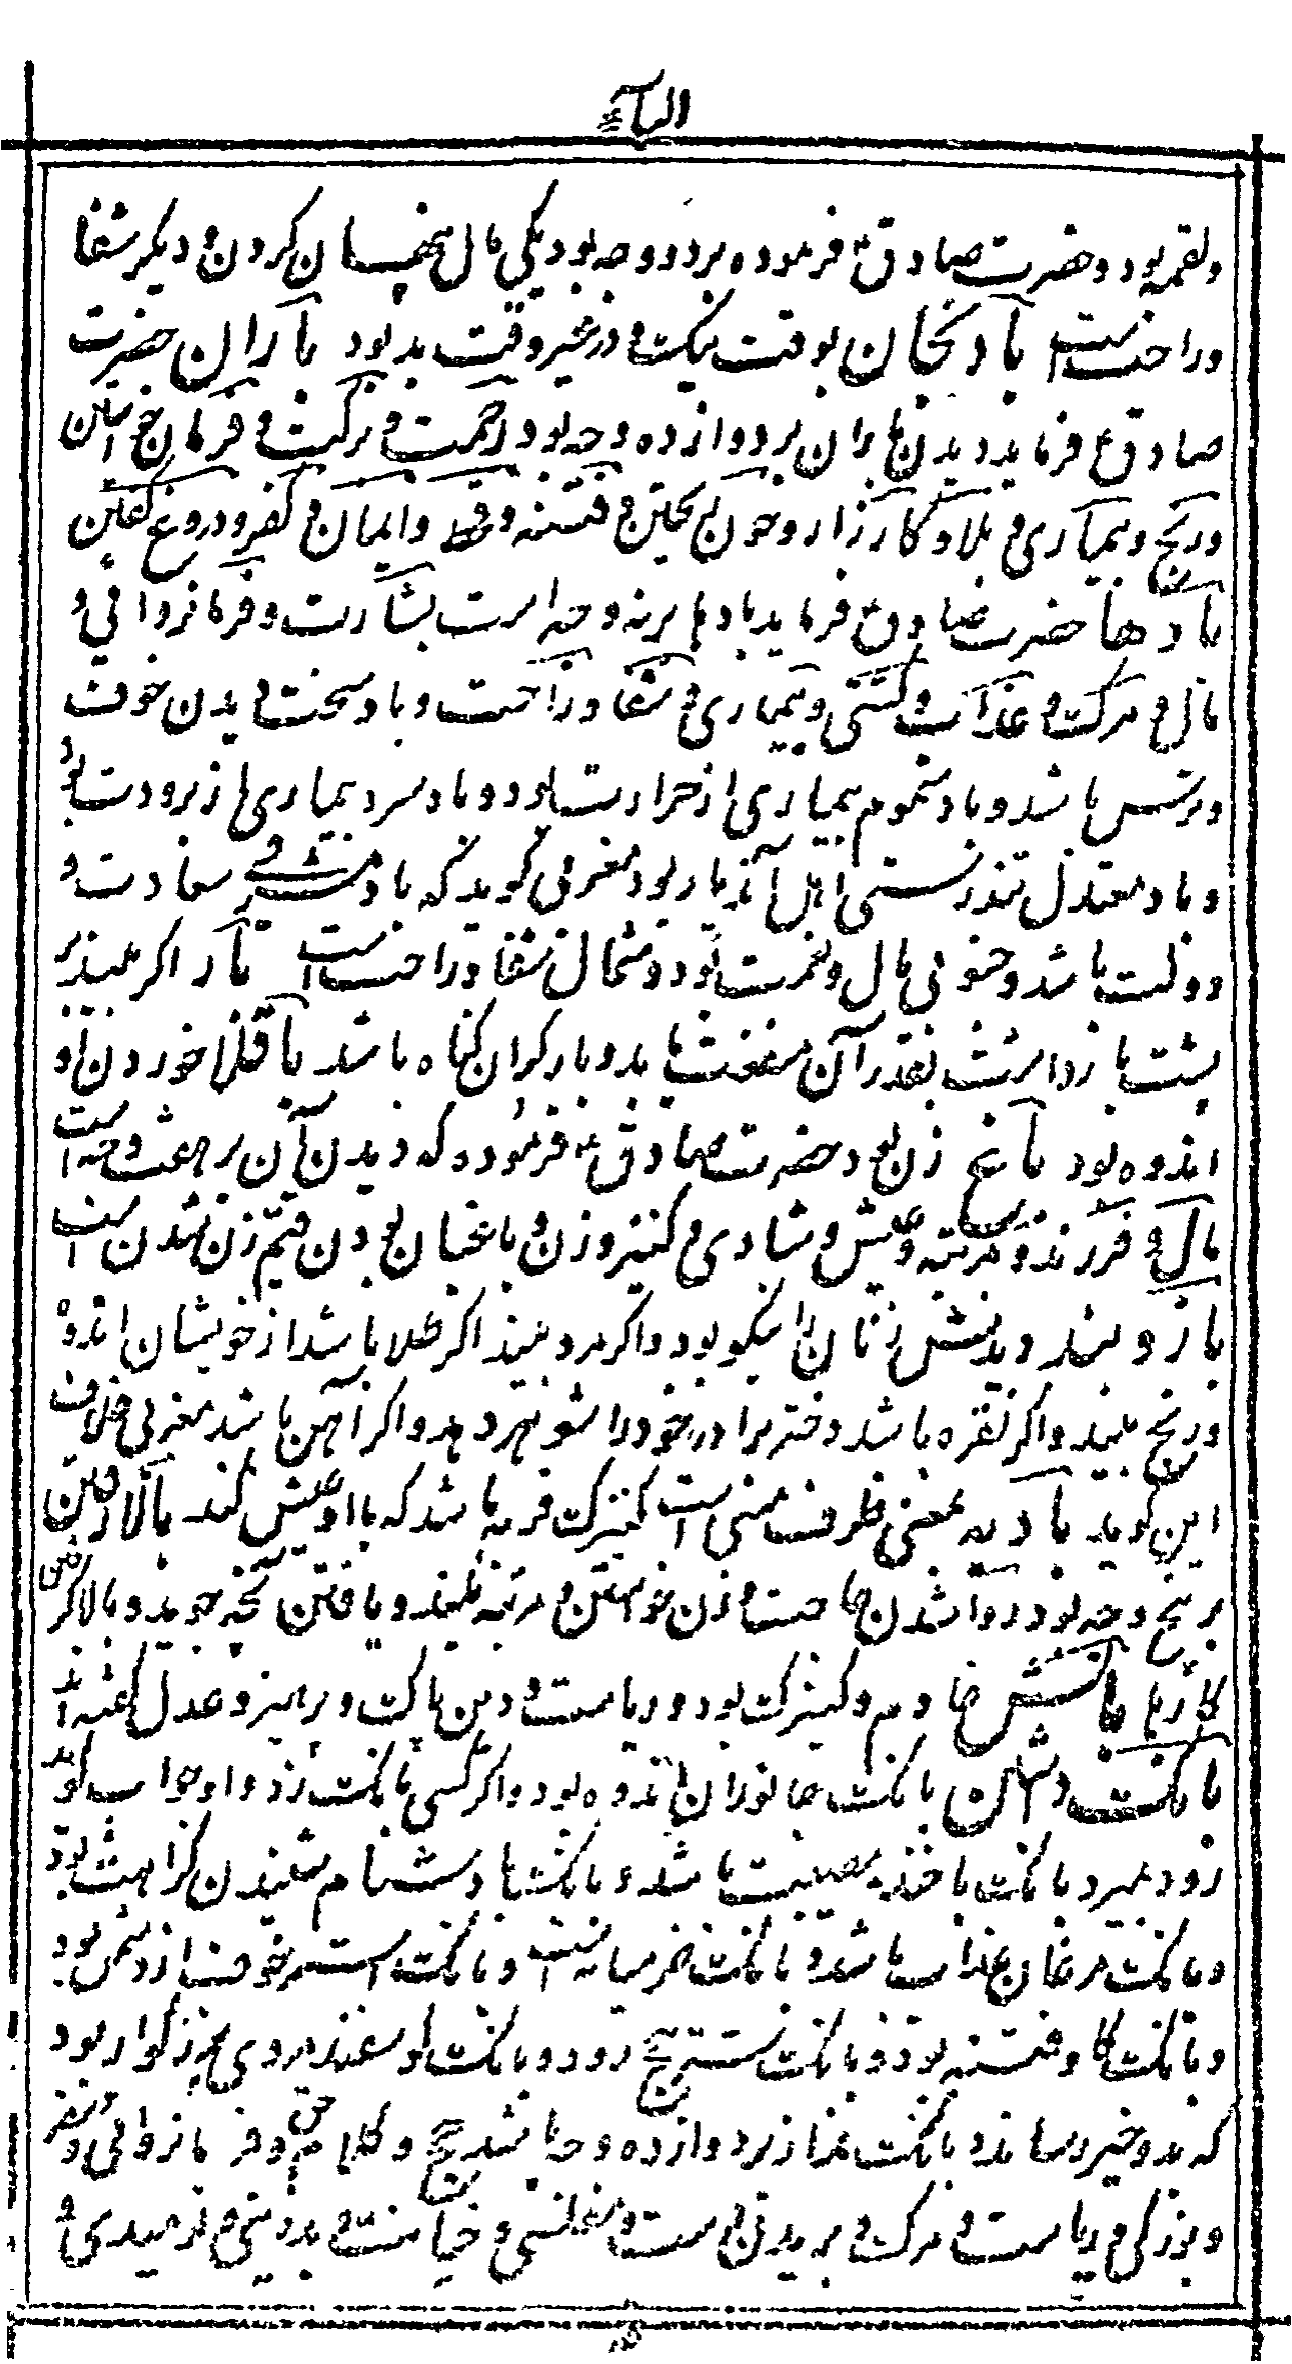 الباء
و لقمه بود و حضرت صادق ع فرموده بر دو وجه بود یکی مال پنهان کردن و دیگر شفا
و راحت است بادنجان بوقت نیکست و در غیر وقت بد بود باران حضرت
صادق ع فرماید دیدن باران بر دوازده وجه بود رحمت و برکت و فرمان خواستن
و رنج و بیماری و بلا و کارزار و خون ریختن و فتنه و قحط و ایمان و کفر و دروغ گفتن
بادها حضرت صادق ع فرماید بادها بر نه وجه است بشارت و فرمانروائی و
مال و مرگ و عذاب و کشتی و بیماری و شفا و راحت و باد سخت و بدن خوف
و ترس باشد و باد سموم بیماری از حرارت بود و باد سرد بیماری از برودت بود
و باد معتدل تندرستی اهل آندیار بود مغربی گوید که باد مشرقی سعادت و
دولت باشد و جنوبی مال و نعمت بود و شمال شفا و راحت است بار اگر بیند بر
پشت بار داشت بقدر آن منفعت یابد و بار گران گناه باشد باقلا خوردن او
اندوه بود باغ زن بود حضرت صادق ع فرموده که دیدن آن بر هفت وجه است
مال و فرزند و مرتبه و عیش و شادی و کنیز و زن و باغبان بودن قیم زن شدن است
بازوبند دیدنش زنان را نیکو بود و اگر مرد بیند اگر طلا باشد از خویشان اندوه
و رنج بیند و اگر نقره باشد دختر برادر خود را شوهر دهد و اگر آهن باشد مغربی خلاف
این گوید بادیه یعنی ظرف مسی است کنیزک فربه باشد که با او عیش کند بالا رفتن
بر پنج وجه بود روا شدن حاجت و زن خواستن و مرتبه بلند و یافتن آنچه جوید و بالا گرفتن
کارها بالش خادم و کنیزک بود و ریاست و دین پاک و پرهیز و عدل گفته اند
بانگ داشتن بانگ جانوران اندوه بود و اگر کسی بانگ زند و او جواب گوید
زود بمیرد بانگ با خنده مصیبت باشد و بانگ با دشنام شنیدن کراهت بود
و بانگ مرغان عذاب باشد و بانگ خر میانه است و بانگ استر خوف از دشمن بود
و بانگ گاو فتنه بود و بانگ شتر بحج رود و بانگ گوسفند مردی بزرگوار بود
که بدو خیر رساند و بانگ نماز بر دوازده وجه باشد حج و کلام حق و فرمانروائی و سفر
و بزرگی و ریاست و مرگ و بریدن دست و مفلسی و خیانت و بددینی و نومیدی و